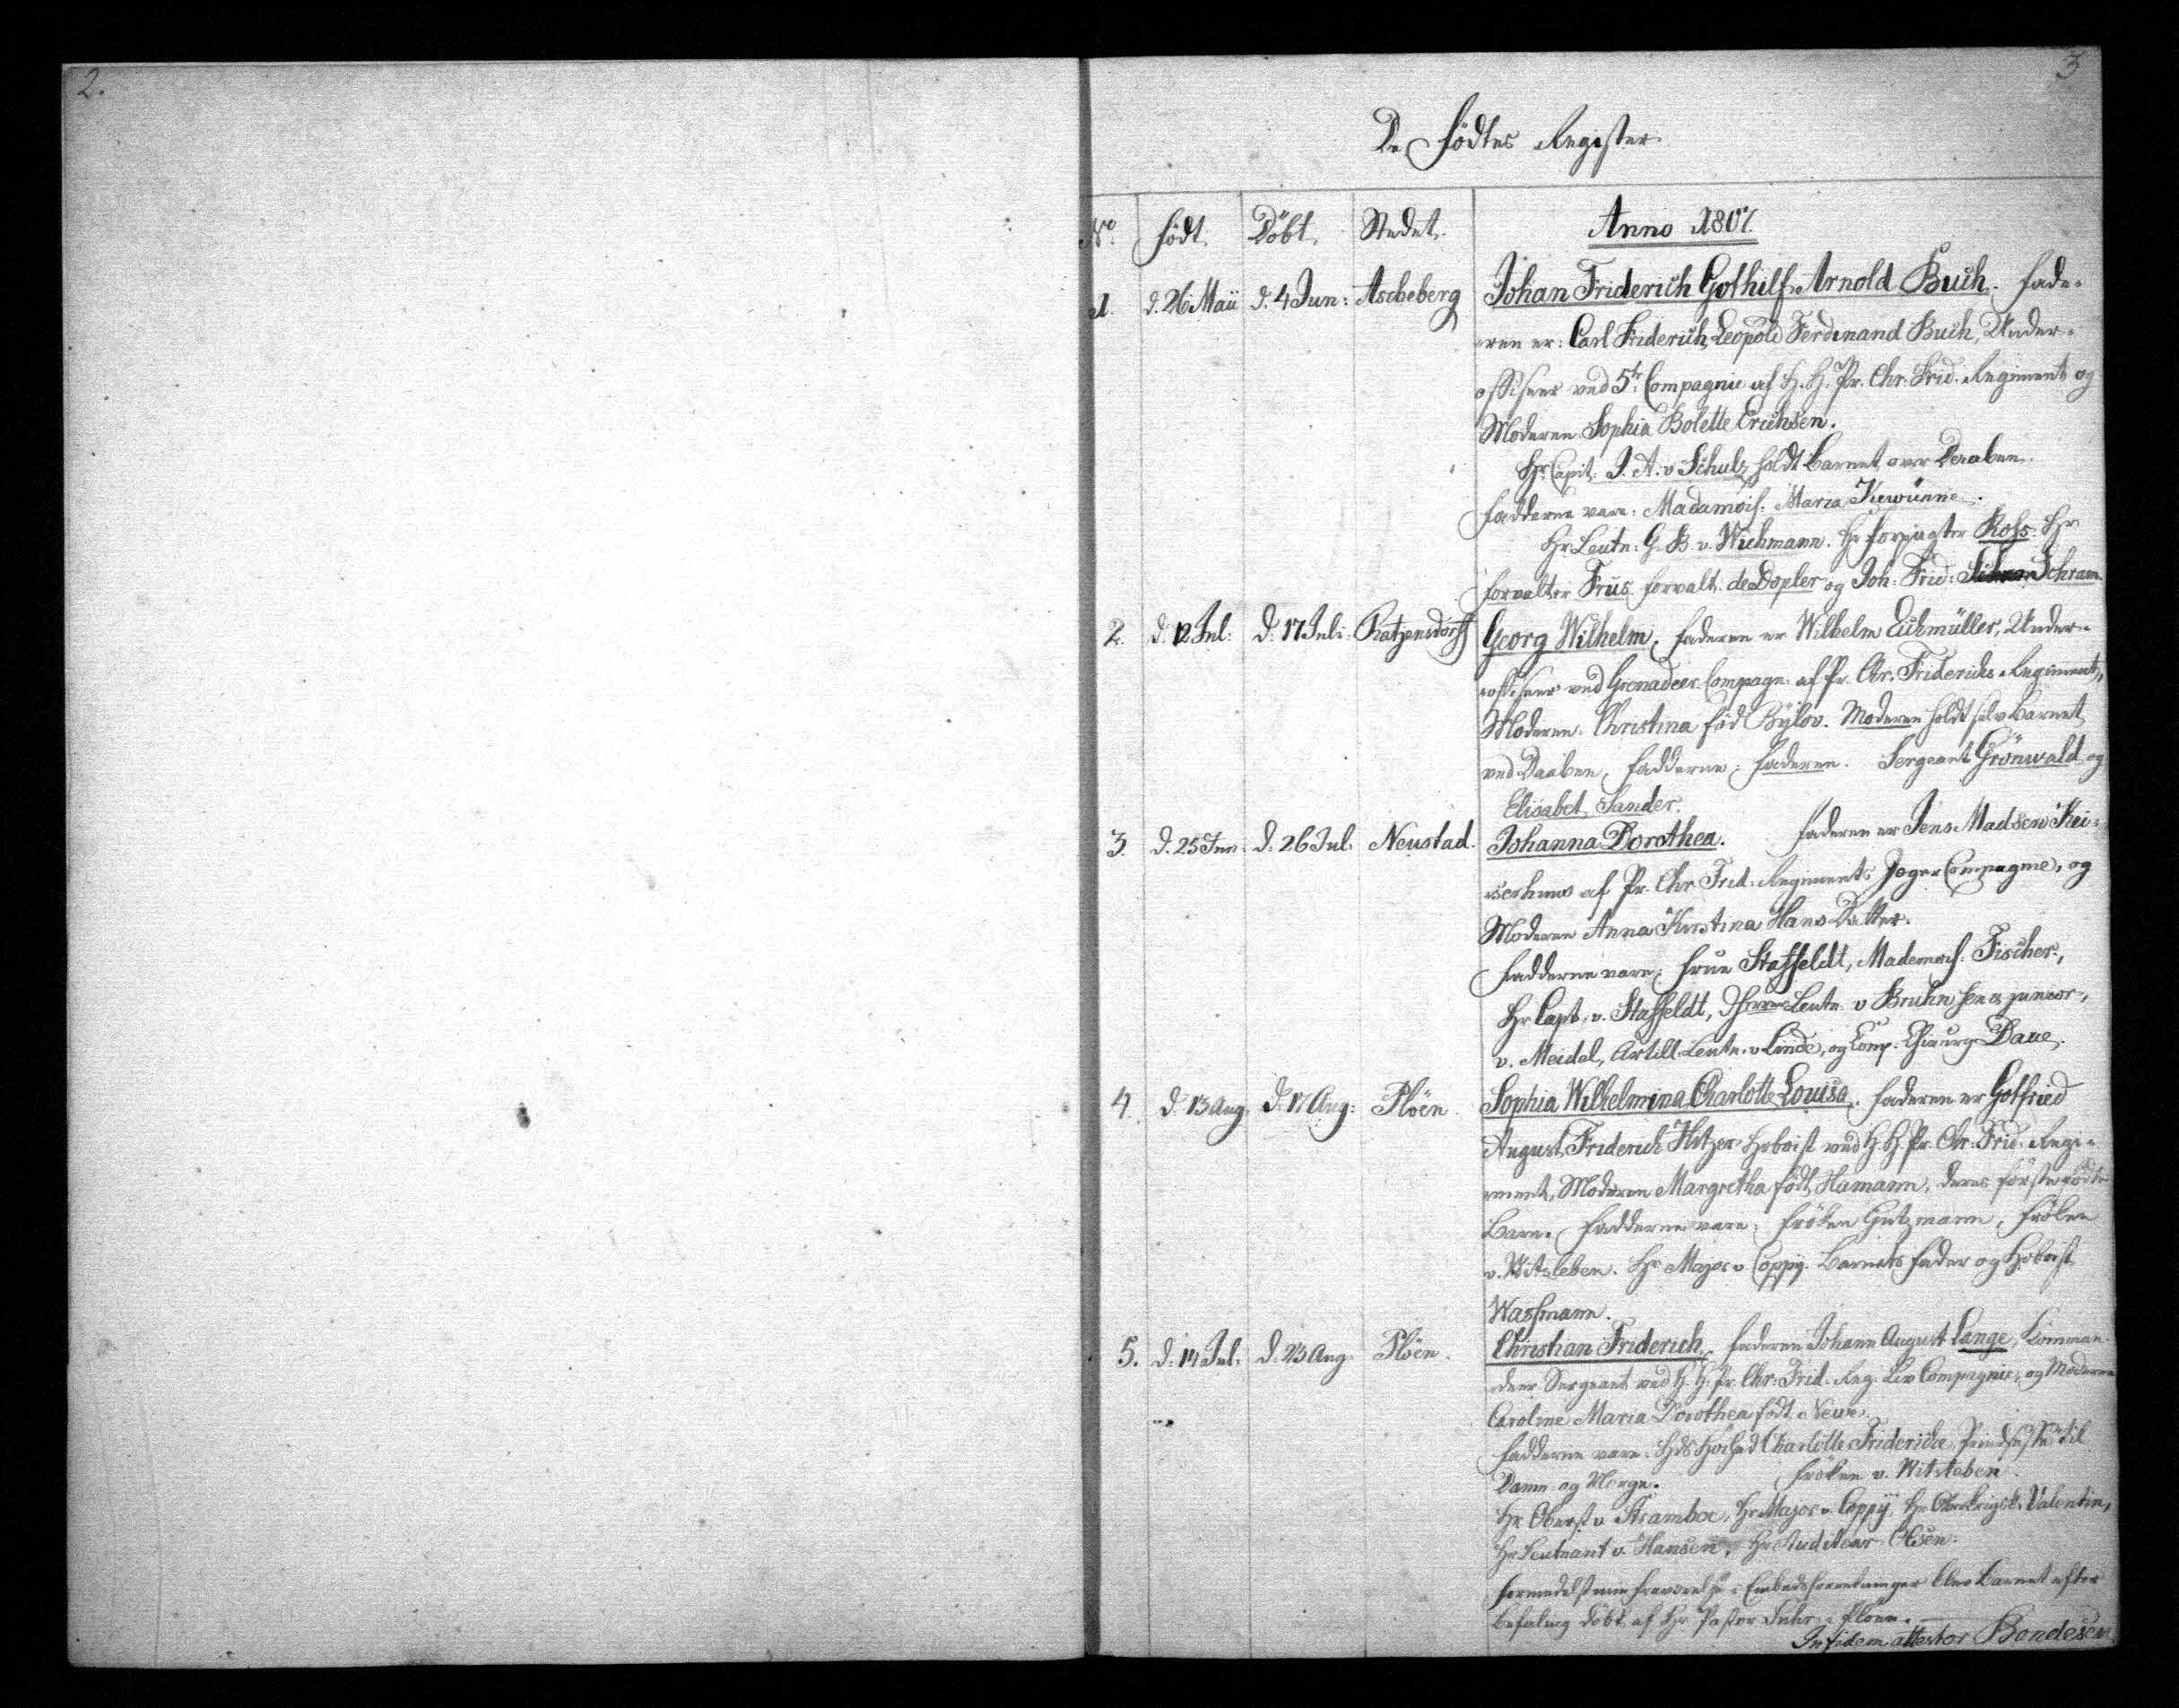 2.
3
De Fødtes Register
No. Födt. Döbt. Stedet. Anno 1807.
1. d. 26 Maii d. 4 Jun: Ascheberg Johan Friderich Gothilf Arnold Buch. Fade-
ren er: Carl Friderich Leopold Ferdinand Buch, Under-
officeer ved 5te Compagnie af H. H. Pr. Chr. Frid. Regiment og
Moderen Sophia Bolette Erichsen.
Hr Capit. J. A. v Schulz holdt Barnet over Daaben.
Fadderne vare: Madamois: Maria
Hr Leutn: G. B. v. Wichmann. Hr Forpagter Rohs. Hr
Forvalter Friis Forvalt. de Dopler og Joh: Frid: Schram.
2. d. 12 Jul: d. 17 Juli: Ratzensdorff Georg Wilhelm, Faderen er Wilhelm Eichmüller, Under-
officeer ved Grenadeer Compagn: af Pr. Chr. Friderichs Regiment,
Moderen: Christina född Bylov. Moderen holdt selv Barnet
ved Daaben, Fadderne: Faderen. Sergeant Grönwald og
Elisabet Sander.
3. d. 25 Jun. d. 26 Jul. Neustad. Johanna Dorothea. Faderen er Jens Madsen
af Pr. Chr. Frid. Regiments Jæger Compagnie, og
Moderen Anna Kirstina Hans Datter.
Fadderne vare: Frue Staffeldt, Mademois: Fischer,
Hr Capt. v. Staffeldt, Leutn. v Bruhn sen & junior,
v. Meidel, Artill. Leutn. v Linde, og Comp. Chirurg Daue.
4. d. 13 Aug. d. 17 Aug: Ploën. Sophia Wilhelmina Charlotte Louisa. Faderen er Gotfried
August Friderich Hitzer Hoboist ved H. H. Pr. Chr. Frid. Regi-
ment, Moderen Margretha födt Hamann, deres förstefödte
Barn. Fadderne vare: Fröken Gutzmann, Fröken
v. Witsleben. Hr Major v Coppy. Barnets Fader og Hoboist
Wassmann.
5. d. 14 Jul. d. 23 Aug. Ploën. Christian Friderich. Faderen Johann August Lange, Komman-
deer Sergeant ved H. H. Pr. Chr. Frid. Reg. Liv Compagnie, og Moderen
Caroline Maria Dorothea födt Neuve.
Fadderne vare: Hds Höihed Charlotte Fridericke, Prindsesse til
Danm og Norge. Fröken v. Witsleben.
Hr Oberst v Stramboe, Hr Major v. Coppy, Hr Oberkrigsk. Valentin,
Hr Leutnant v. Hansen, Hr Auditeur Olsen.
Formedelst min Fraværelse i Embedsforretninger blev Barnet efter
Befaling döbt af Hr Pastor Suhr i Ploen.
In fidem attestor Bondesen